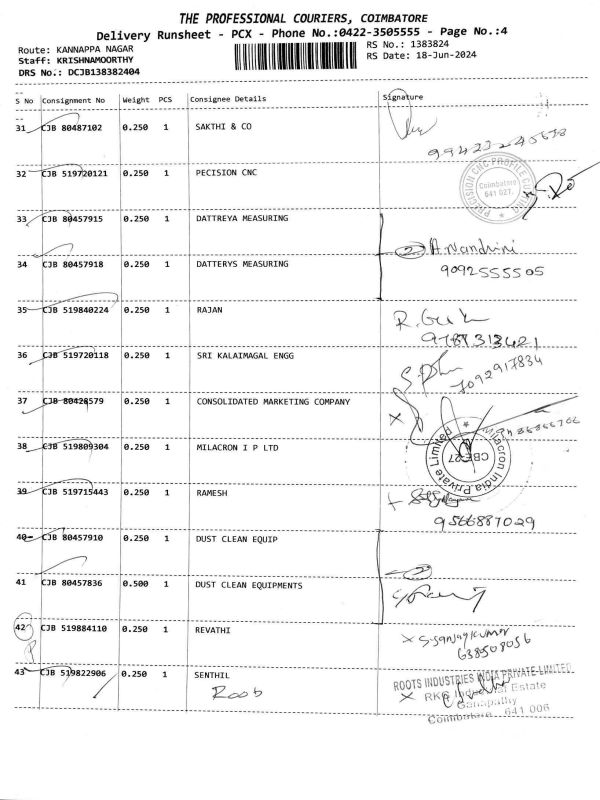 THE PROFESSIONAL COURIERS, COIMBATORE
Delivery Runsheet - PCX - Phone No.:0422-3505555 - Page No.:4
Route: KANNAPPA NAGAR
Staff: KRISHNAMOORTHY
DRS No.: DCJB138382404
RS No.: 1383824
RS Date: 18-Jun-2024
S No Consignment No Weight PCS Consignee Details Signature
31 CJB 80487102 0.250 1 SAKTHI & CO
32 CJB 519720121 0.250 1 PECISION CNC
PRECISION CNC PROFILE CUTTING
Coimbatore
641 027.
33 CJB 80457915 0.250 1 DATTREYA MEASURING
2 A. Nandhini
34 CJB 80457918 0.250 1 DATTERYS MEASURING
9092555505
35 CJB 519840224 0.250 1 RAJAN
36 CJB 519720118 0.250 1 SRI KALAIMAGAL ENGG
7092917834
37 CJB 80428579 0.250 1 CONSOLIDATED MARKETING COMPANY
38 CJB 519809304 0.250 1 MILACRON I P LTD
Milacron India Private Limited
CBE-27
39 CJB 519715443 0.250 1 RAMESH
9566887029
40 CJB 80457910 0.250 1 DUST CLEAN EQUIP
2
41 CJB 80457836 0.500 1 DUST CLEAN EQUIPMENTS
42 CJB 519884110 0.250 1 REVATHI
P
x S. Sanjaykumar
43 CJB 519822906 0.250 1 SENTHIL
ROOTS INDUSTRIES INDIA PRIVATE LIMITED
x RKG Industrial Estate
Ganapathy
Coimbatore 641 006